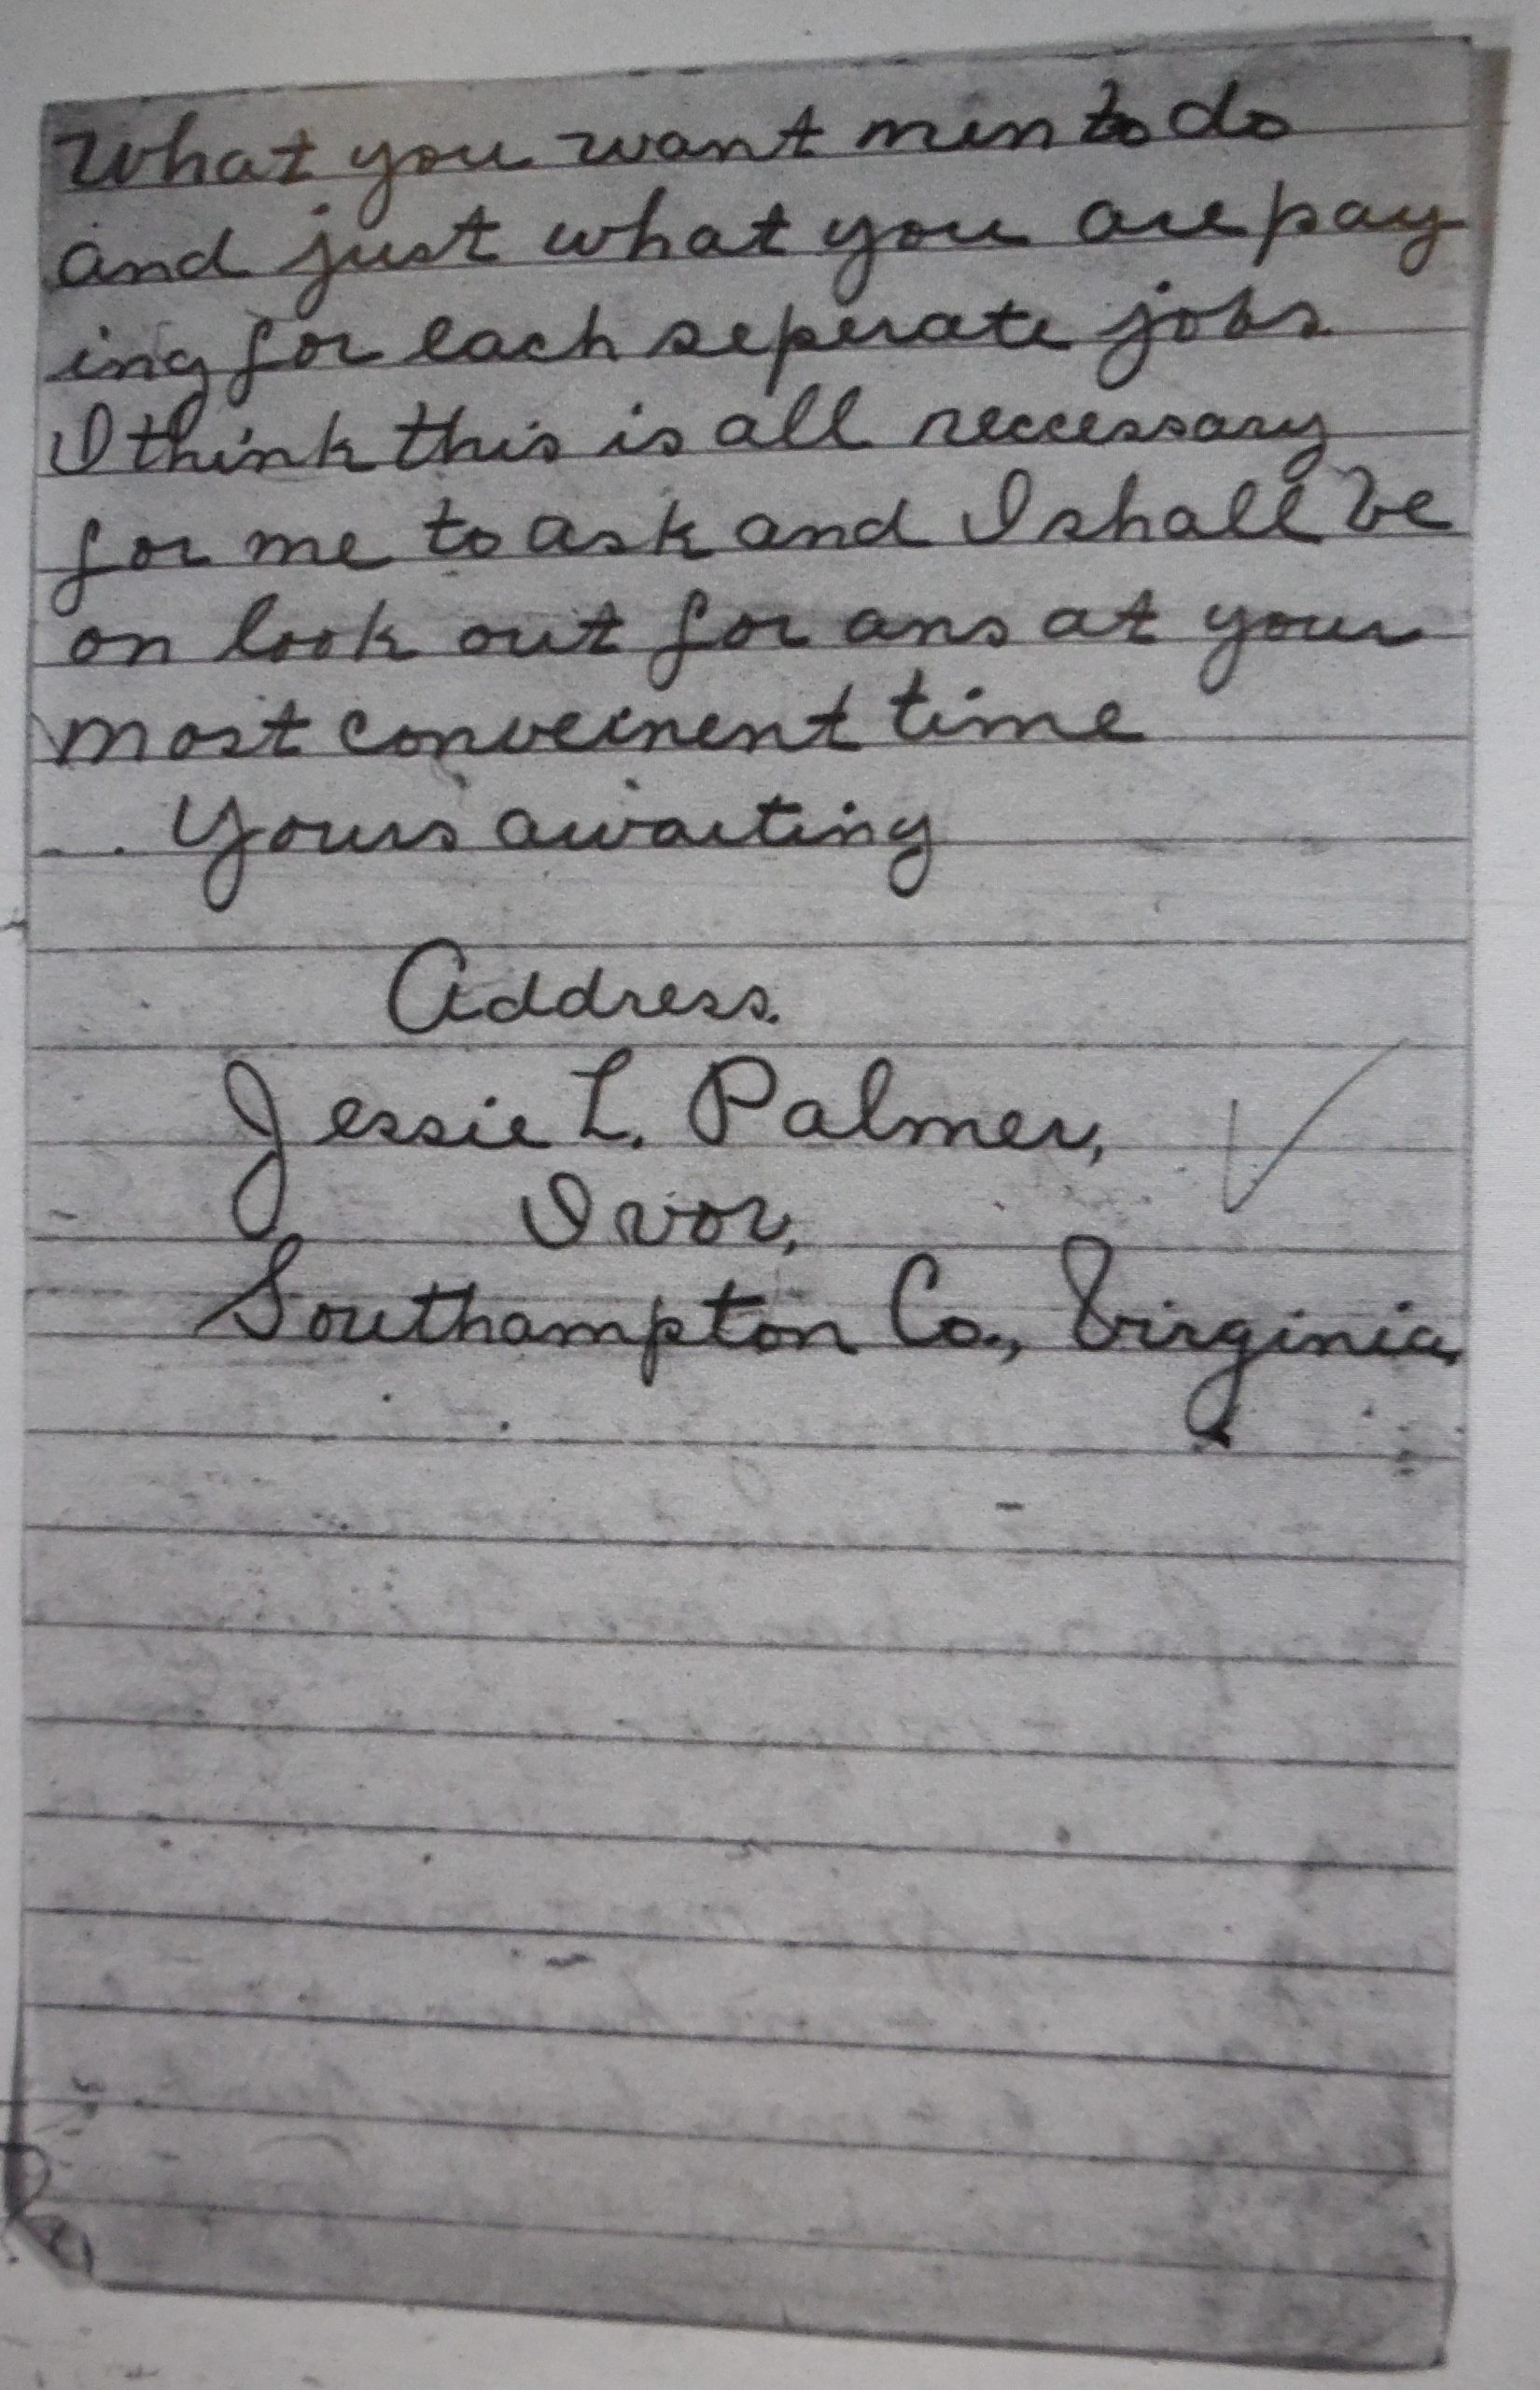 What you want men to do
and just what you are pay
ing for each seperate jobs
I think this is all neccessary
for me to ask and I shall be
on look out for ans at your
most conveinent time
Yours awaiting
Address.
Jessie L. Palmer,
Ivor,
Southampton Co., Virginia